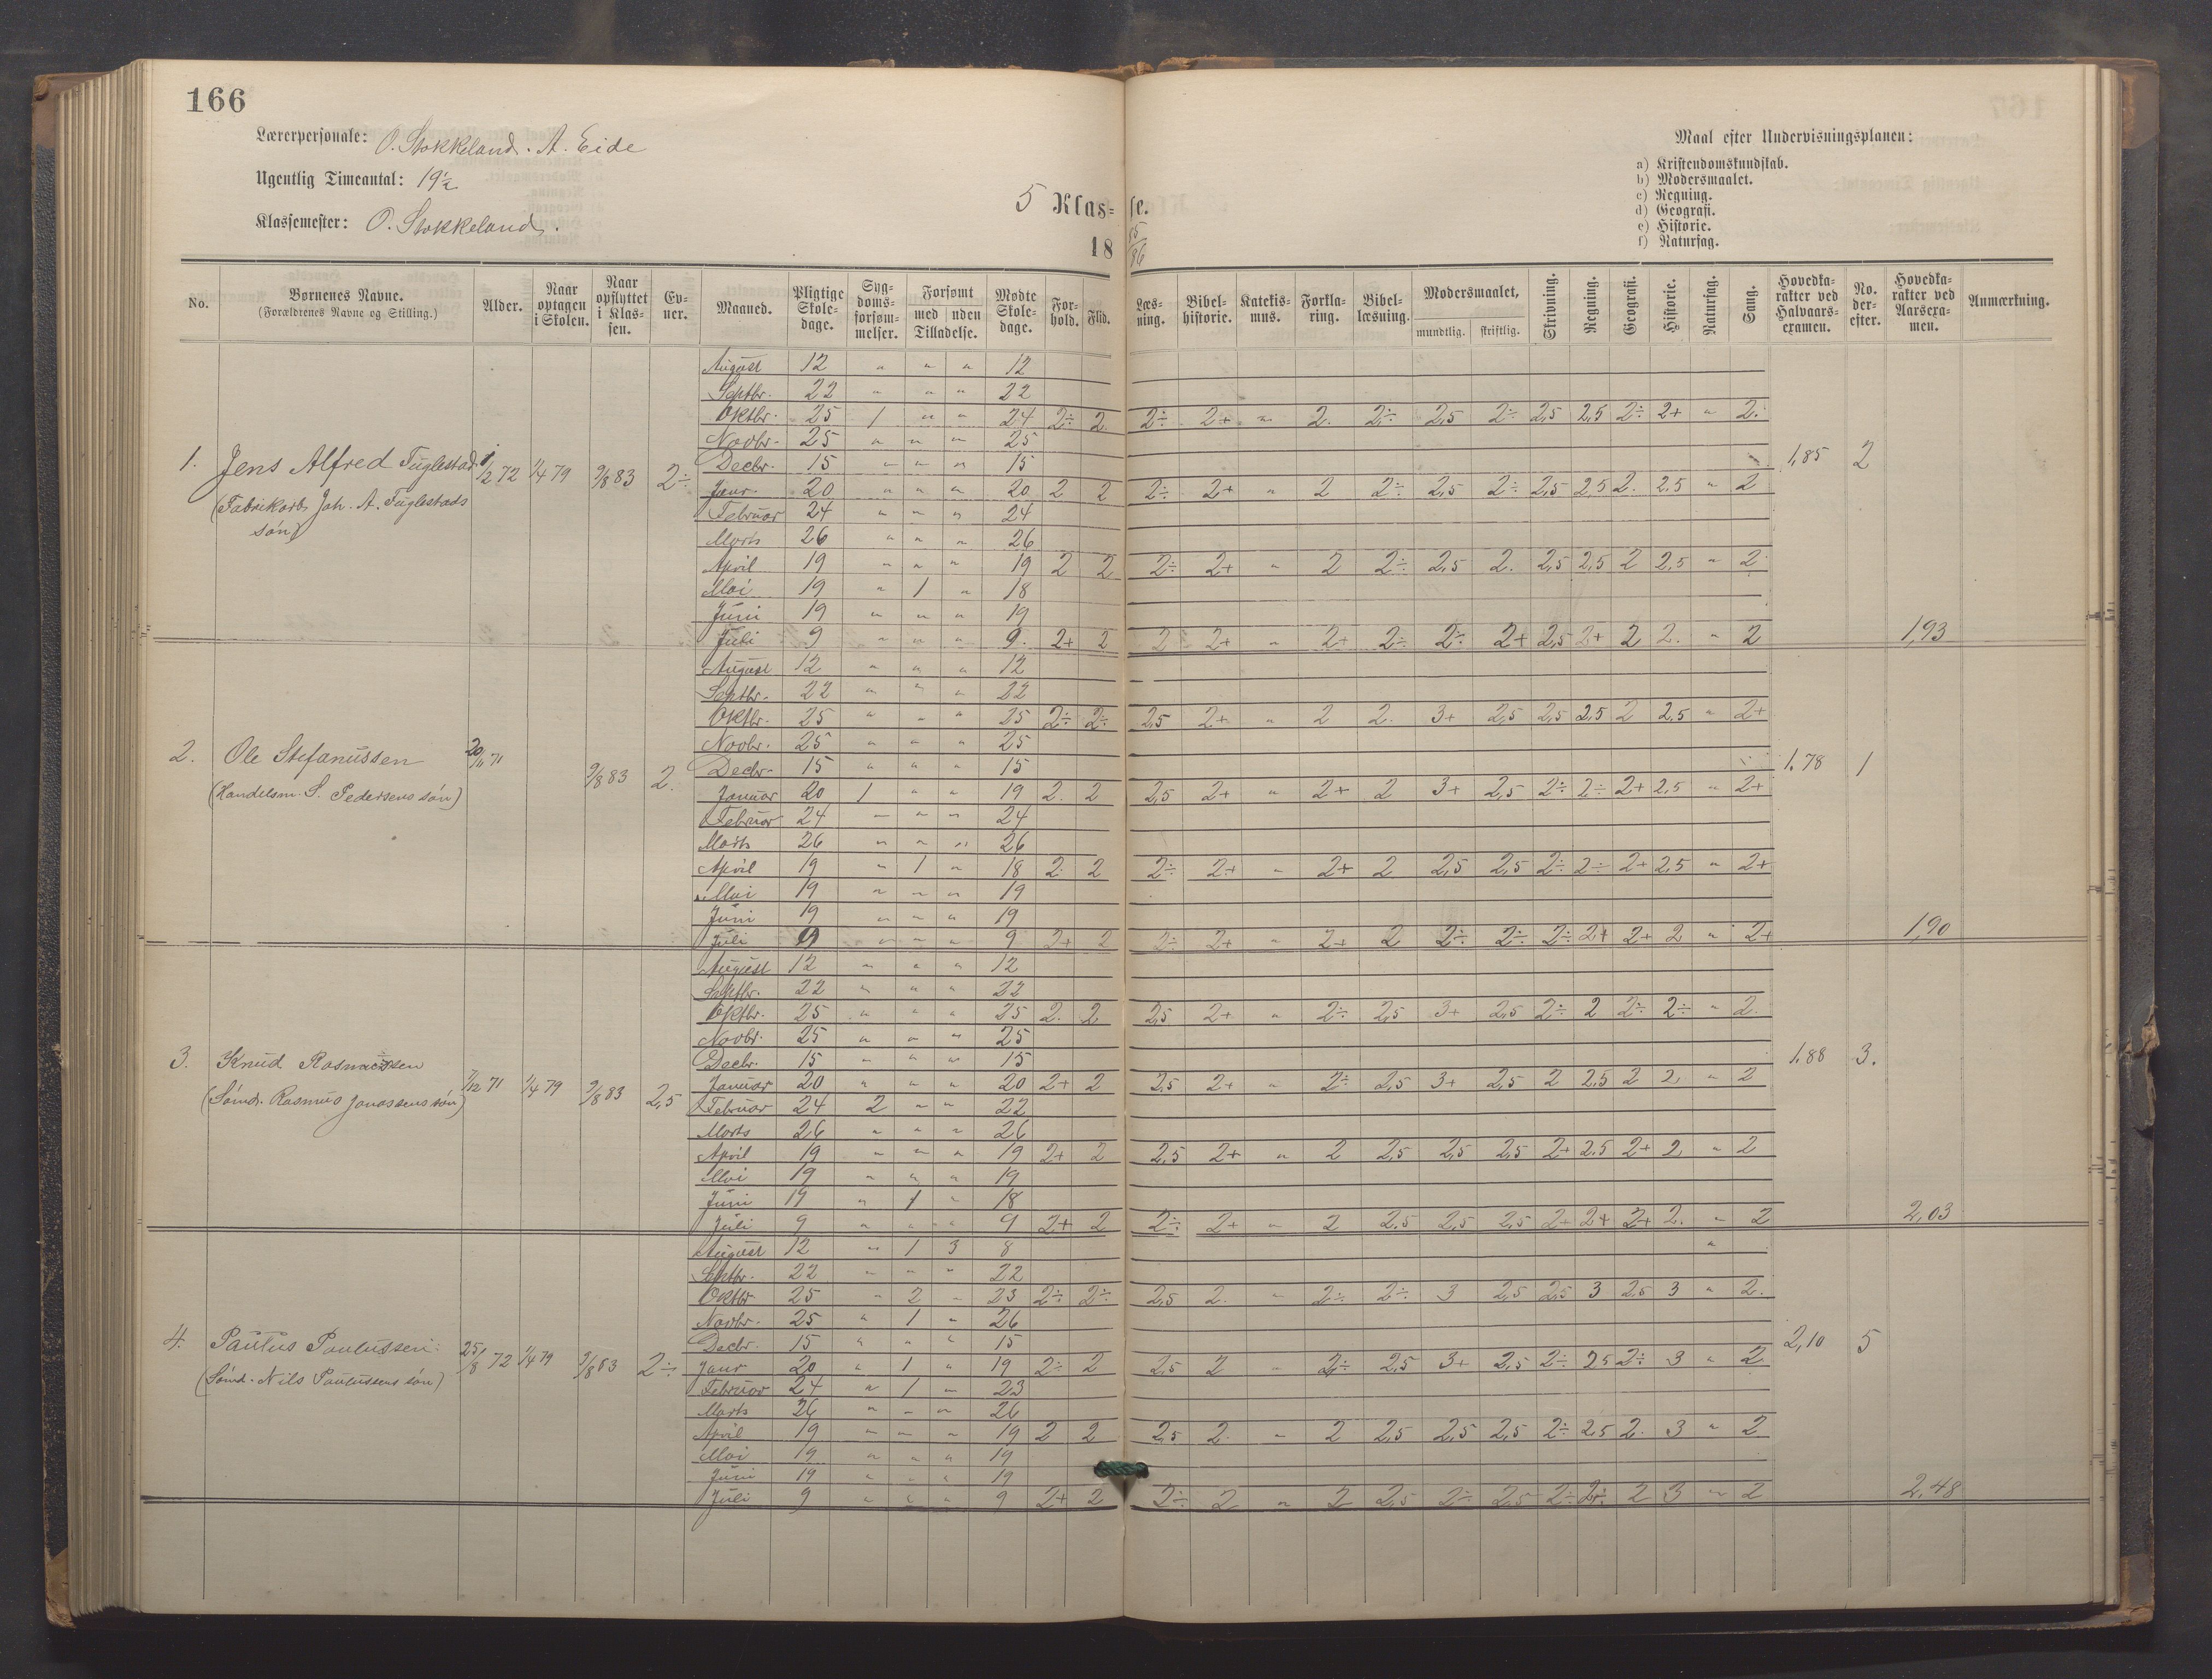 166
Lærerpersonale: O. Stokkeland. A. Eide
Ugentlig Timeantal: 19½
Klassemester: O. Stokkeland.
5 Klasse.
18 85/86
Maal efter Undervisningsplanen:
a) Kristendomskundskab.
b) Modersmaalet.
c) Regning.
d) Geografi.
e) Historie.
f) Naturfag.
No. Børnenes Navne. (Forældrenes Navne og Stilling.) Alder. Naar optagen i Skolen. Naar opflyttet i Klassen. Evner. Maaned. Pligtige Skoledage. Sygdomsforsømmelser. Forsømt med uden Tilladelse. Mødte Skoledage. Forhold. Flid. Læsning. Bibelhistorie. Katekismus. Forklaring. Bibellæsning. Modersmaalet, mundtlig. skriftlig. Skrivning. Regning. Geografi. Historie. Naturfag. Sang. Hovedkarakter ved Halvaarsexamen. No. derefter. Hovedkarakter ved Aarsexamen. Anmærkning.
August 12 " " " 12
Septbr. 22 " " " 22
Oktbr. 25 1 " " 24 2÷ 2 2÷ 2+ " 2. 2÷ 2,5 2÷ 2,5 2,5 2÷ 2+ " 2.
Novbr. 25 " " " 25
1. Jens Alfred Fuglestad 1/2 72 1/4 79 9/8 83 2÷ Decbr. 15 " " " 15 1,85 2
(Fabrikarb. Joh. A. Fuglestads Janr. 20 " " " 20 2 2 2÷ 2+ " 2 2÷ 2,5 2÷ 2,5 2,5 2. 2,5 " 2
søn) Februar 24 " " " 24
Marts 26 " " " 26
April 19 " " " 19 2 2 2÷ 2+ " 2 2÷ 2,5 2. 2,5 2,5 2 2,5 " 2
Mai 19 " 1 " 18
Juni 19 " " " 19
Juli 9 " " " 9. 2+ 2 2 2+ " 2+ 2÷ 2÷ 2+ 2,5 2+ 2 2. " 2 1,93
August 12 " " " 12
Septbr. 22 " " " 22
Oktbr. 25 " " " 25 2÷ 2÷ 2,5 2+ " 2 2. 3+ 2,5 2,5 2,5 2 2,5 " 2+
Novbr. 25 " " " 25
2. Ole Stefanussen 20/11 71 9/8 83 2. Decbr. 15 " " " 15 1.78 1
(Handelsm. S. Pedersens søn) Januar 20 1 " " 19 2. 2 2,5 2+ " 2+ 2 3+ 2,5 2÷ 2÷ 2+ 2,5 " 2+
Februar 24 " " " 24
Marts 26 " " " 26
April 19 " 1 " 18 2. 2 2÷ 2+ " 2+ 2 2,5 2,5 2÷ 2÷ 2+ 2,5 " 2+
Mai 19 " " " 19
Juni 19 " " " 19
Juli 9 " " " 9 2+ 2 2÷ 2+ " 2+ 2 2÷ 2÷ 2÷ 2+ 2+ 2 " 2+ 1,90
August 12 " " " 12
Septbr. 22 " " " 22
Oktbr. 25 " " " 25 2. 2 2,5 2+ " 2÷ 2,5 3+ 2,5 2÷ 2 2÷ 2÷ " 2.
Novbr. 25 " " " 25
3. Knud Rasmussen Decbr. 15 " " " 15 1.88 3.
7/12 71 1/4 79 9/8 83 2,5 Januar 20 " " " 20 2+ 2 2,5 2+ " 2÷ 2,5 3+ 2,5 2 2.5 2 2. " 2
(Sømd. Rasmus Jonassens søn) Februar 24 2 " " 22
Marts 26 " " " 26
April 19 " " " 19 2+ 2 2,5 2+ " 2 2,5 2,5 2,5 2+ 2.5 2+ 2 " 2
Mai 19 " " " 19
Juni 19 " 1 " 18
Juli 9 " " " 9 2+ 2 2÷ 2+ " 2 2,5 2,5 2,5 2+ 2+ 2+ 2. " 2 2,03
August 12 " 1 3 8 "
Septbr. 22 " " " 22
Oktbr. 25 " 2 " 23 2÷ 2÷ 2,5 2. " 2÷ 2÷ 3 2,5 2,5 3 2,5 3 " 2.
Novbr. 25 " 1 " 26
4. Paulus Paulussen. Decbr. 15 " " " 15 2,10 5
25/8 72 1/4 79 9/8 83 2÷ Janr. 20 " 1 " 19 2÷ 2 2,5 2 " 2÷ 2,5 3+ 2,5 2÷ 2,5 2÷ 3 " 2
(Sømd. Nils Paulussens søn) Februar 24 " 1 " 23
Marts 26 " " " 26
April 19 " " " 19 2 2 2,5 2. " 2 2,5 2,5 2,5 2÷ 2,5 2. 3 " 2
Mai 19 " " " 19
Juni 19 " " " 19
Juli 9 " " " 9 2+ 2 2÷ 2 " 2 2,5 2÷ 2,5 2÷ 2÷ 2 3 " 2 2,48